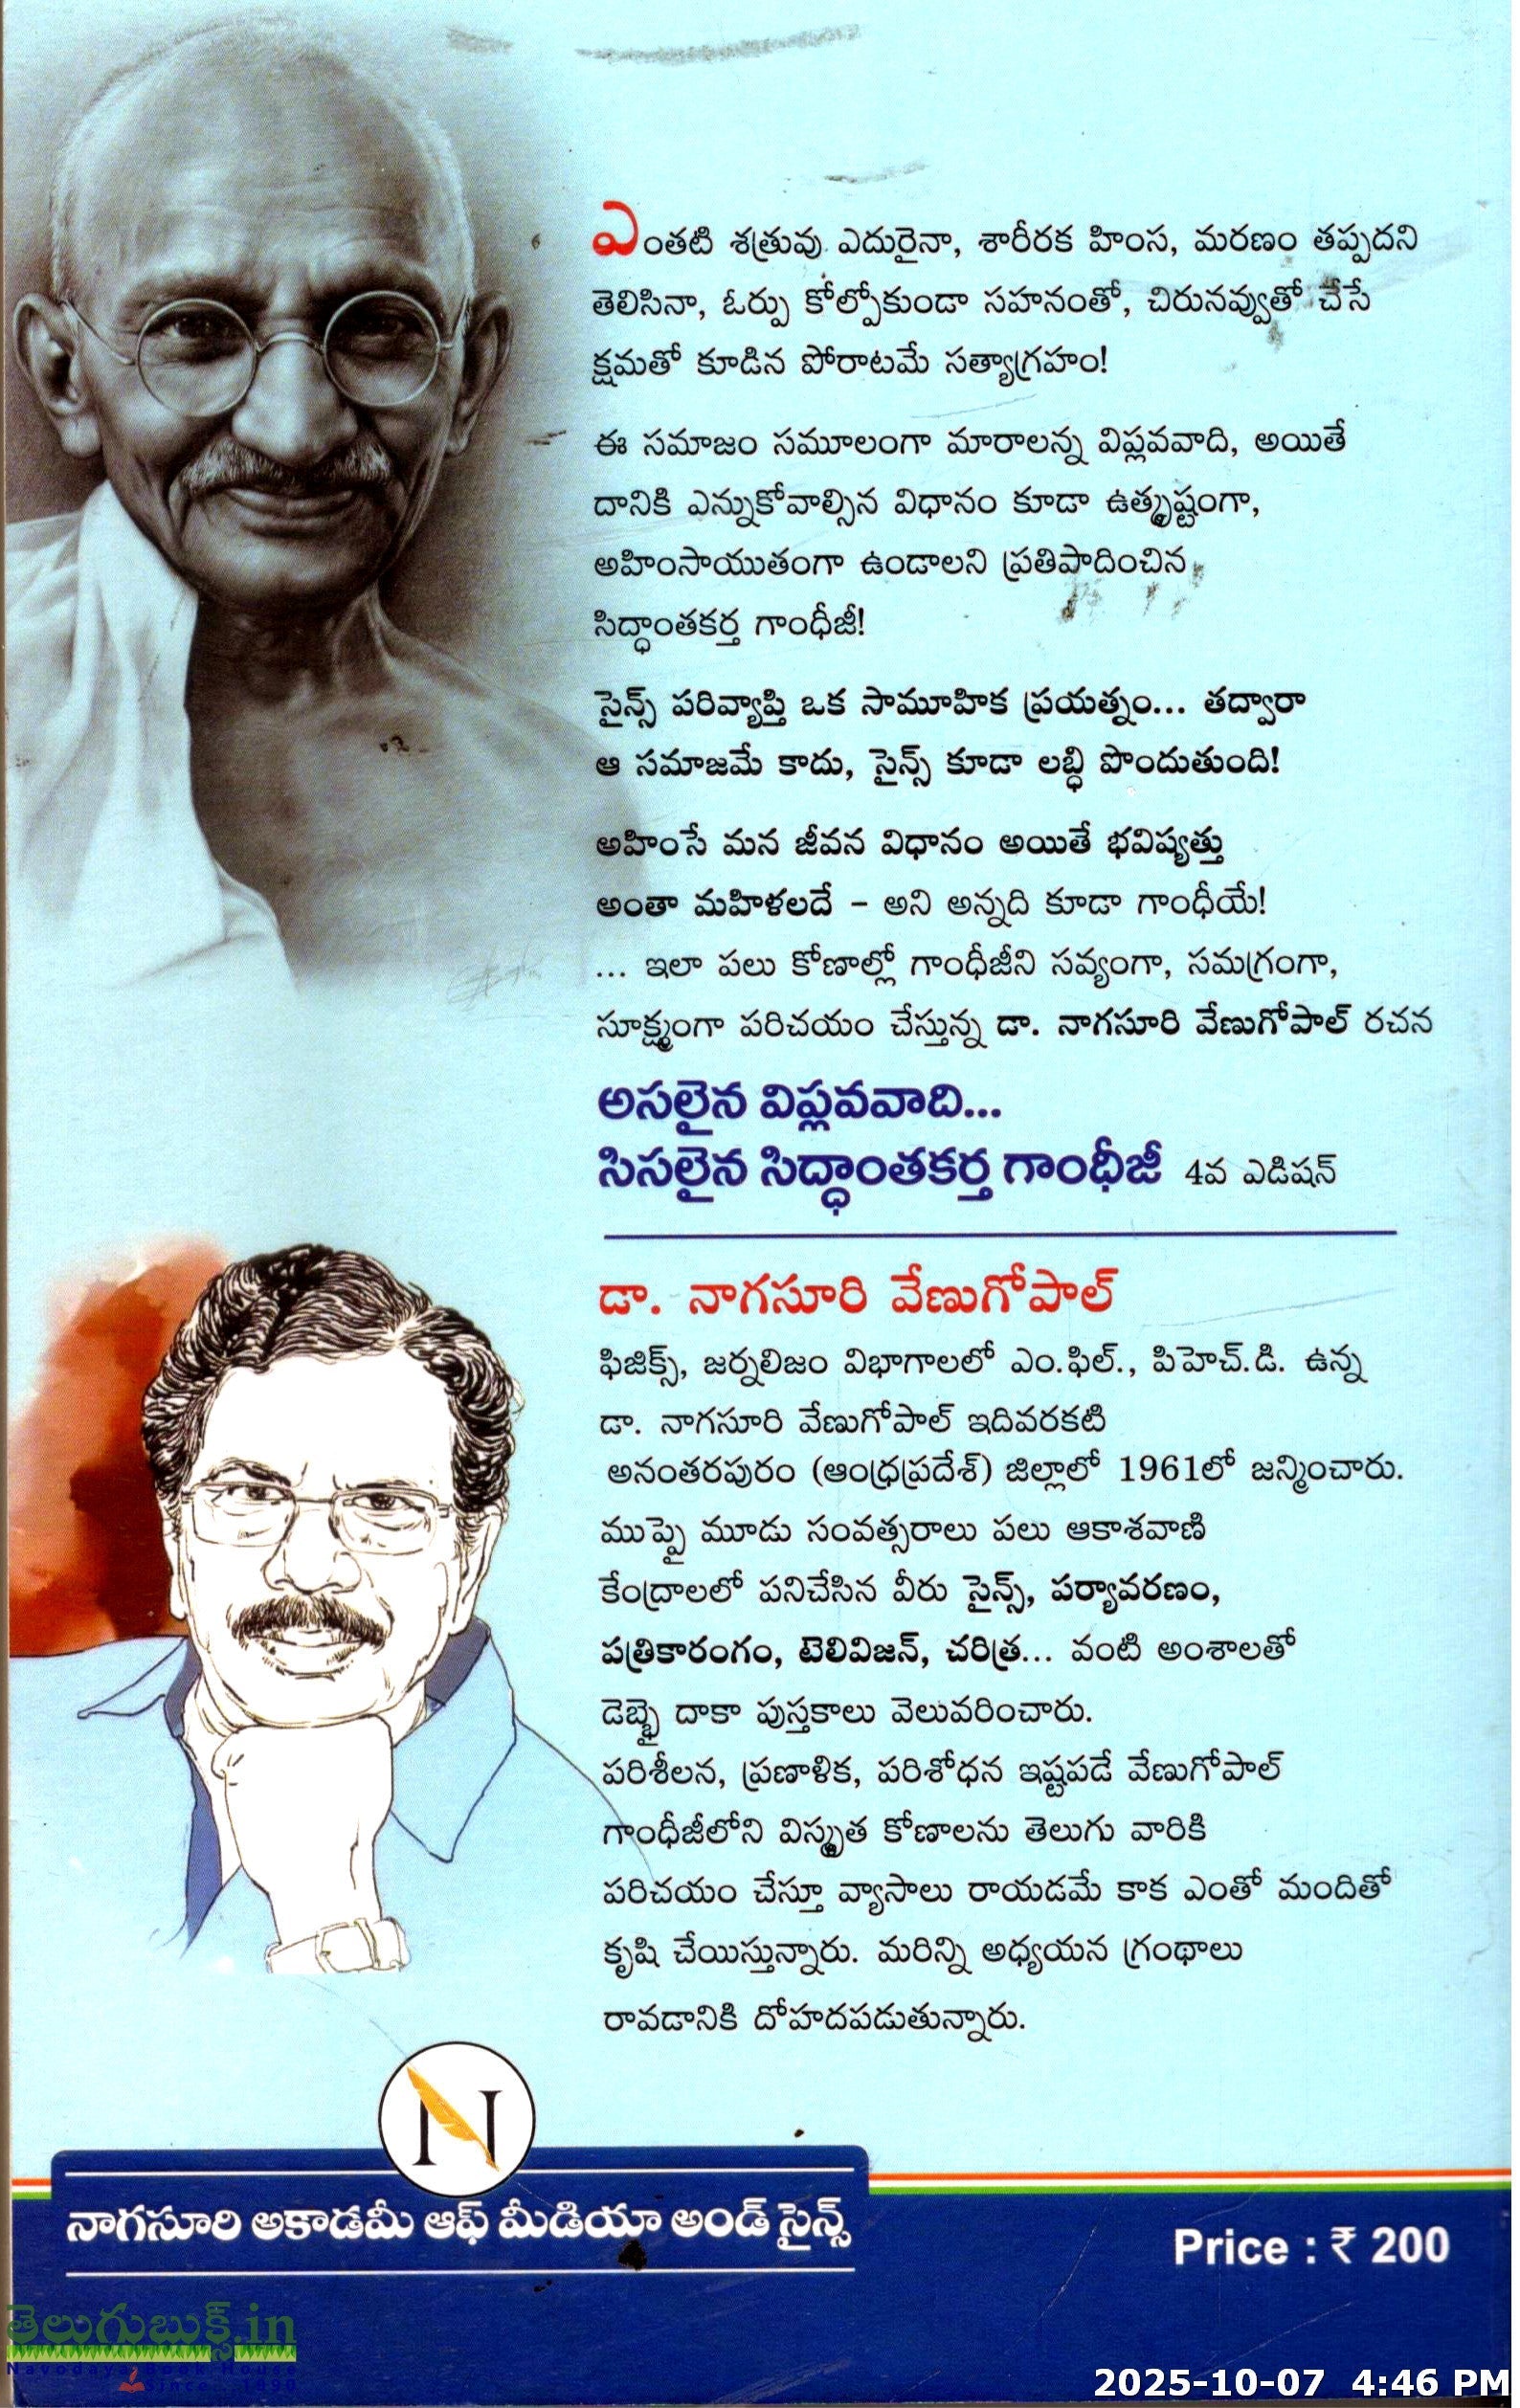 ఎంతటి శత్రువు ఎదురైనా, శారీరక హింస, మరణం తప్పదని
తెలిసినా, ఓర్పు కోల్పోకుండా సహనంతో, చిరునవ్వుతో చేసే
క్షమతో కూడిన పోరాటమే సత్యాగ్రహం!
ఈ సమాజం సమూలంగా మారాలన్న విప్లవవాది, అయితే
దానికి ఎన్నుకోవాల్సిన విధానం కూడా ఉత్కృష్టంగా,
అహింసాయుతంగా ఉండాలని ప్రతిపాదించిన
సిద్ధాంతకర్త గాంధీజీ!
సైన్స్ పరివ్యాప్తి ఒక సామూహిక ప్రయత్నం... తద్వారా
ఆ సమాజమే కాదు, సైన్స్ కూడా లబ్ధి పొందుతుంది!
అహింసే మన జీవన విధానం అయితే భవిష్యత్తు
అంతా మహిళలదే – అని అన్నది కూడా గాంధీయే!
... ఇలా పలు కోణాల్లో గాంధీజీని సవ్యంగా, సమగ్రంగా,
సూక్ష్మంగా పరిచయం చేస్తున్న డా. నాగసూరి వేణుగోపాల్ రచన
అసలైన విప్లవవాది...
సిసలైన సిద్ధాంతకర్త గాంధీజీ 4వ ఎడిషన్
డా. నాగసూరి వేణుగోపాల్
ఫిజిక్స్, జర్నలిజం విభాగాలలో ఎం.ఫిల్., పిహెచ్.డి. ఉన్న
డా. నాగసూరి వేణుగోపాల్ ఇదివరకటి
అనంతరపురం (ఆంధ్రప్రదేశ్) జిల్లాలో 1961లో జన్మించారు.
ముప్పై మూడు సంవత్సరాలు పలు ఆకాశవాణి
కేంద్రాలలో పనిచేసిన వీరు సైన్స్, పర్యావరణం,
పత్రికారంగం, టెలివిజన్, చరిత్ర... వంటి అంశాలతో
డెబ్భై దాకా పుస్తకాలు వెలువరించారు.
పరిశీలన, ప్రణాళిక, పరిశోధన ఇష్టపడే వేణుగోపాల్
గాంధీజీలోని విస్మృత కోణాలను తెలుగు వారికి
పరిచయం చేస్తూ వ్యాసాలు రాయడమే కాక ఎంతో మందితో
కృషి చేయిస్తున్నారు. మరిన్ని అధ్యయన గ్రంథాలు
రావడానికి దోహదపడుతున్నారు.
N
నాగసూరి అకాడమీ ఆఫ్ మీడియా అండ్ సైన్స్
Price : ₹ 200
తెలుగుబుక్స్.in
Navodaya Book House
Since 1990
2025-10-07 4:46 PM